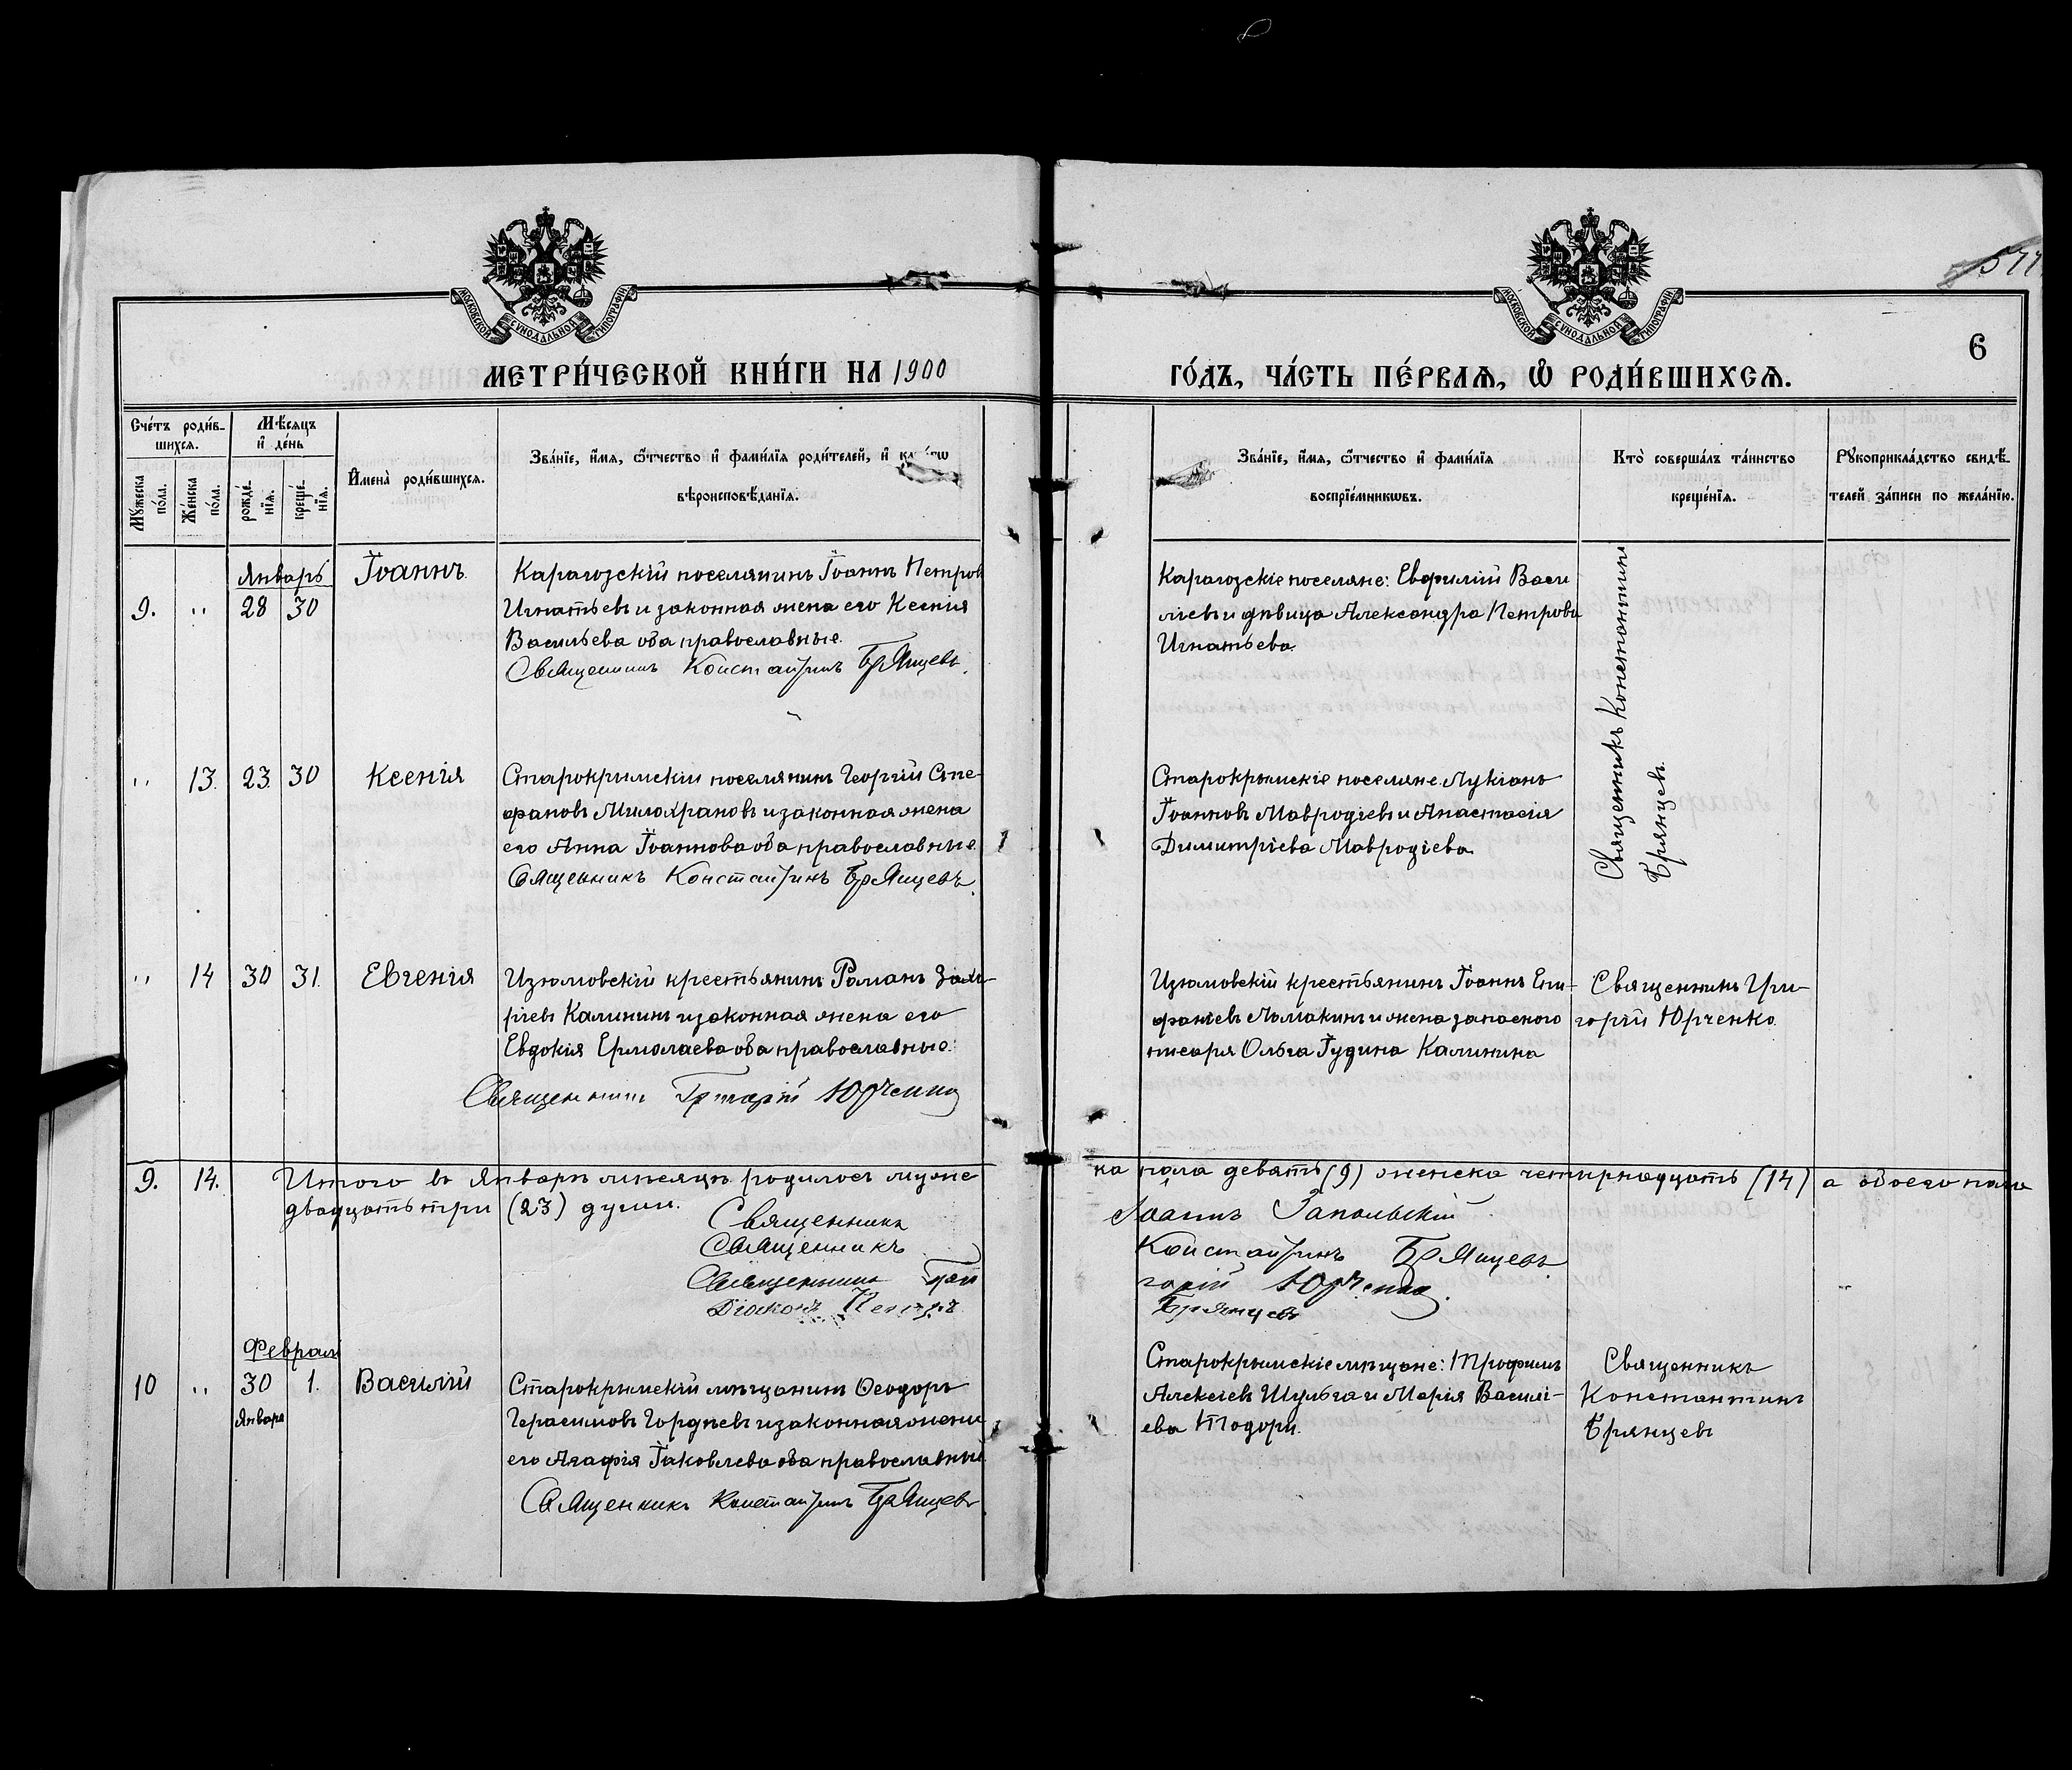 577
6
МОСКОВСКОЙ СѴНОДАЛЬНОЙ ТИПОГРАФІИ
МОСКОВСКОЙ СѴНОДАЛЬНОЙ ТИПОГРАФІИ
МЕТРИ́ЧЕСКОЙ КНИ́ГИ НА 1900
ГО́ДЪ, ЧА́СТЬ ПЕ́РВАЯ, Ѽ РОДИ́ВШИХСЯ.
Сче́тъ роди́в-
шихся.
Мѣ́сяцъ
и҆ де́нь
Мꙋ́жеска
по́ла.
Же́нска
по́ла.
рожде́-
нїя.
креще́-
нїя.
И҆мена̀ роди́вшихся.
Зва́нїе, и҆́мя, ѻ҆́тчество и҆ фами́лїя роди́телей, и҆
вѣроисповѣ́данїя.
Зва́нїе, и҆́мя, ѻ҆́тчество и҆ фами́лїя
воспрїе́мникѡвъ.
Кто̀ соверша́лъ та́инство
креще́нїя.
Рꙋкоприкла́дство свидѣ́-
телей за́писи по жела́нїю.
Январь
9. " 28 30 Іоаннъ
Карагозскій поселянинъ Іоаннъ Петров
Игнатьевъ и законная жена его Ксенія
Васильева оба православные.
Священникъ Константинъ Брянцевъ.
Карагозскіе поселяне: Евфимій Васи
льевъ и дѣвица Александра Петрова
Игнатьева.
Священникъ Константинъ
Брянцевъ.
" 13. 23. 30 Ксенія
Старокрымскій поселянинъ Георгій Сте-
фановъ Милохрановъ и законная жена
его Анна Іоаннова оба православные.
Священникъ Константинъ Брянцевъ.
Старокрымскіе поселяне Лукіанъ
Іоанновъ Мавродіевъ и Анастасія
Димитріева Мавродіева.
" 14 30 31. Евгенія
Изюмовскій крестьянинъ Романъ Заха-
ріевъ Калининъ и законная жена его
Евдокія Ермолаева оба православные.
Священникъ Григорій Юрченко
Изюмовскій крестьянинъ Іоаннъ Епи-
фаніевъ Ломакинъ и жена запасного
писаря Ольга Іудина Калинина
Священникъ Гри-
горій Юрченко.
9. 14. Итого въ Январѣ мѣсяцѣ родилось мужс
ка пола девять (9) женска четырнадцать (14) а обоего пола
двадцать три (23) души.
Священникъ Іоаннъ Запольскій
Священникъ Константинъ Брянцевъ.
Священникъ Григорій Юрченко.
Діаконъ Петръ Брянцевъ
Февраль
10 " 30 1. Василій
Января
Старокрымскій мѣщанинъ Ѳеодоръ
Герасимовъ Гордѣевъ и законная жена
его Агафія Іаковлева оба православные
Священникъ Константинъ Брянцевъ
Старокрымскіе мѣщане: Трофимъ
Алексіевъ Шульга и Марія Василі-
ева Тодори.
Священникъ
Константинъ
Брянцевъ